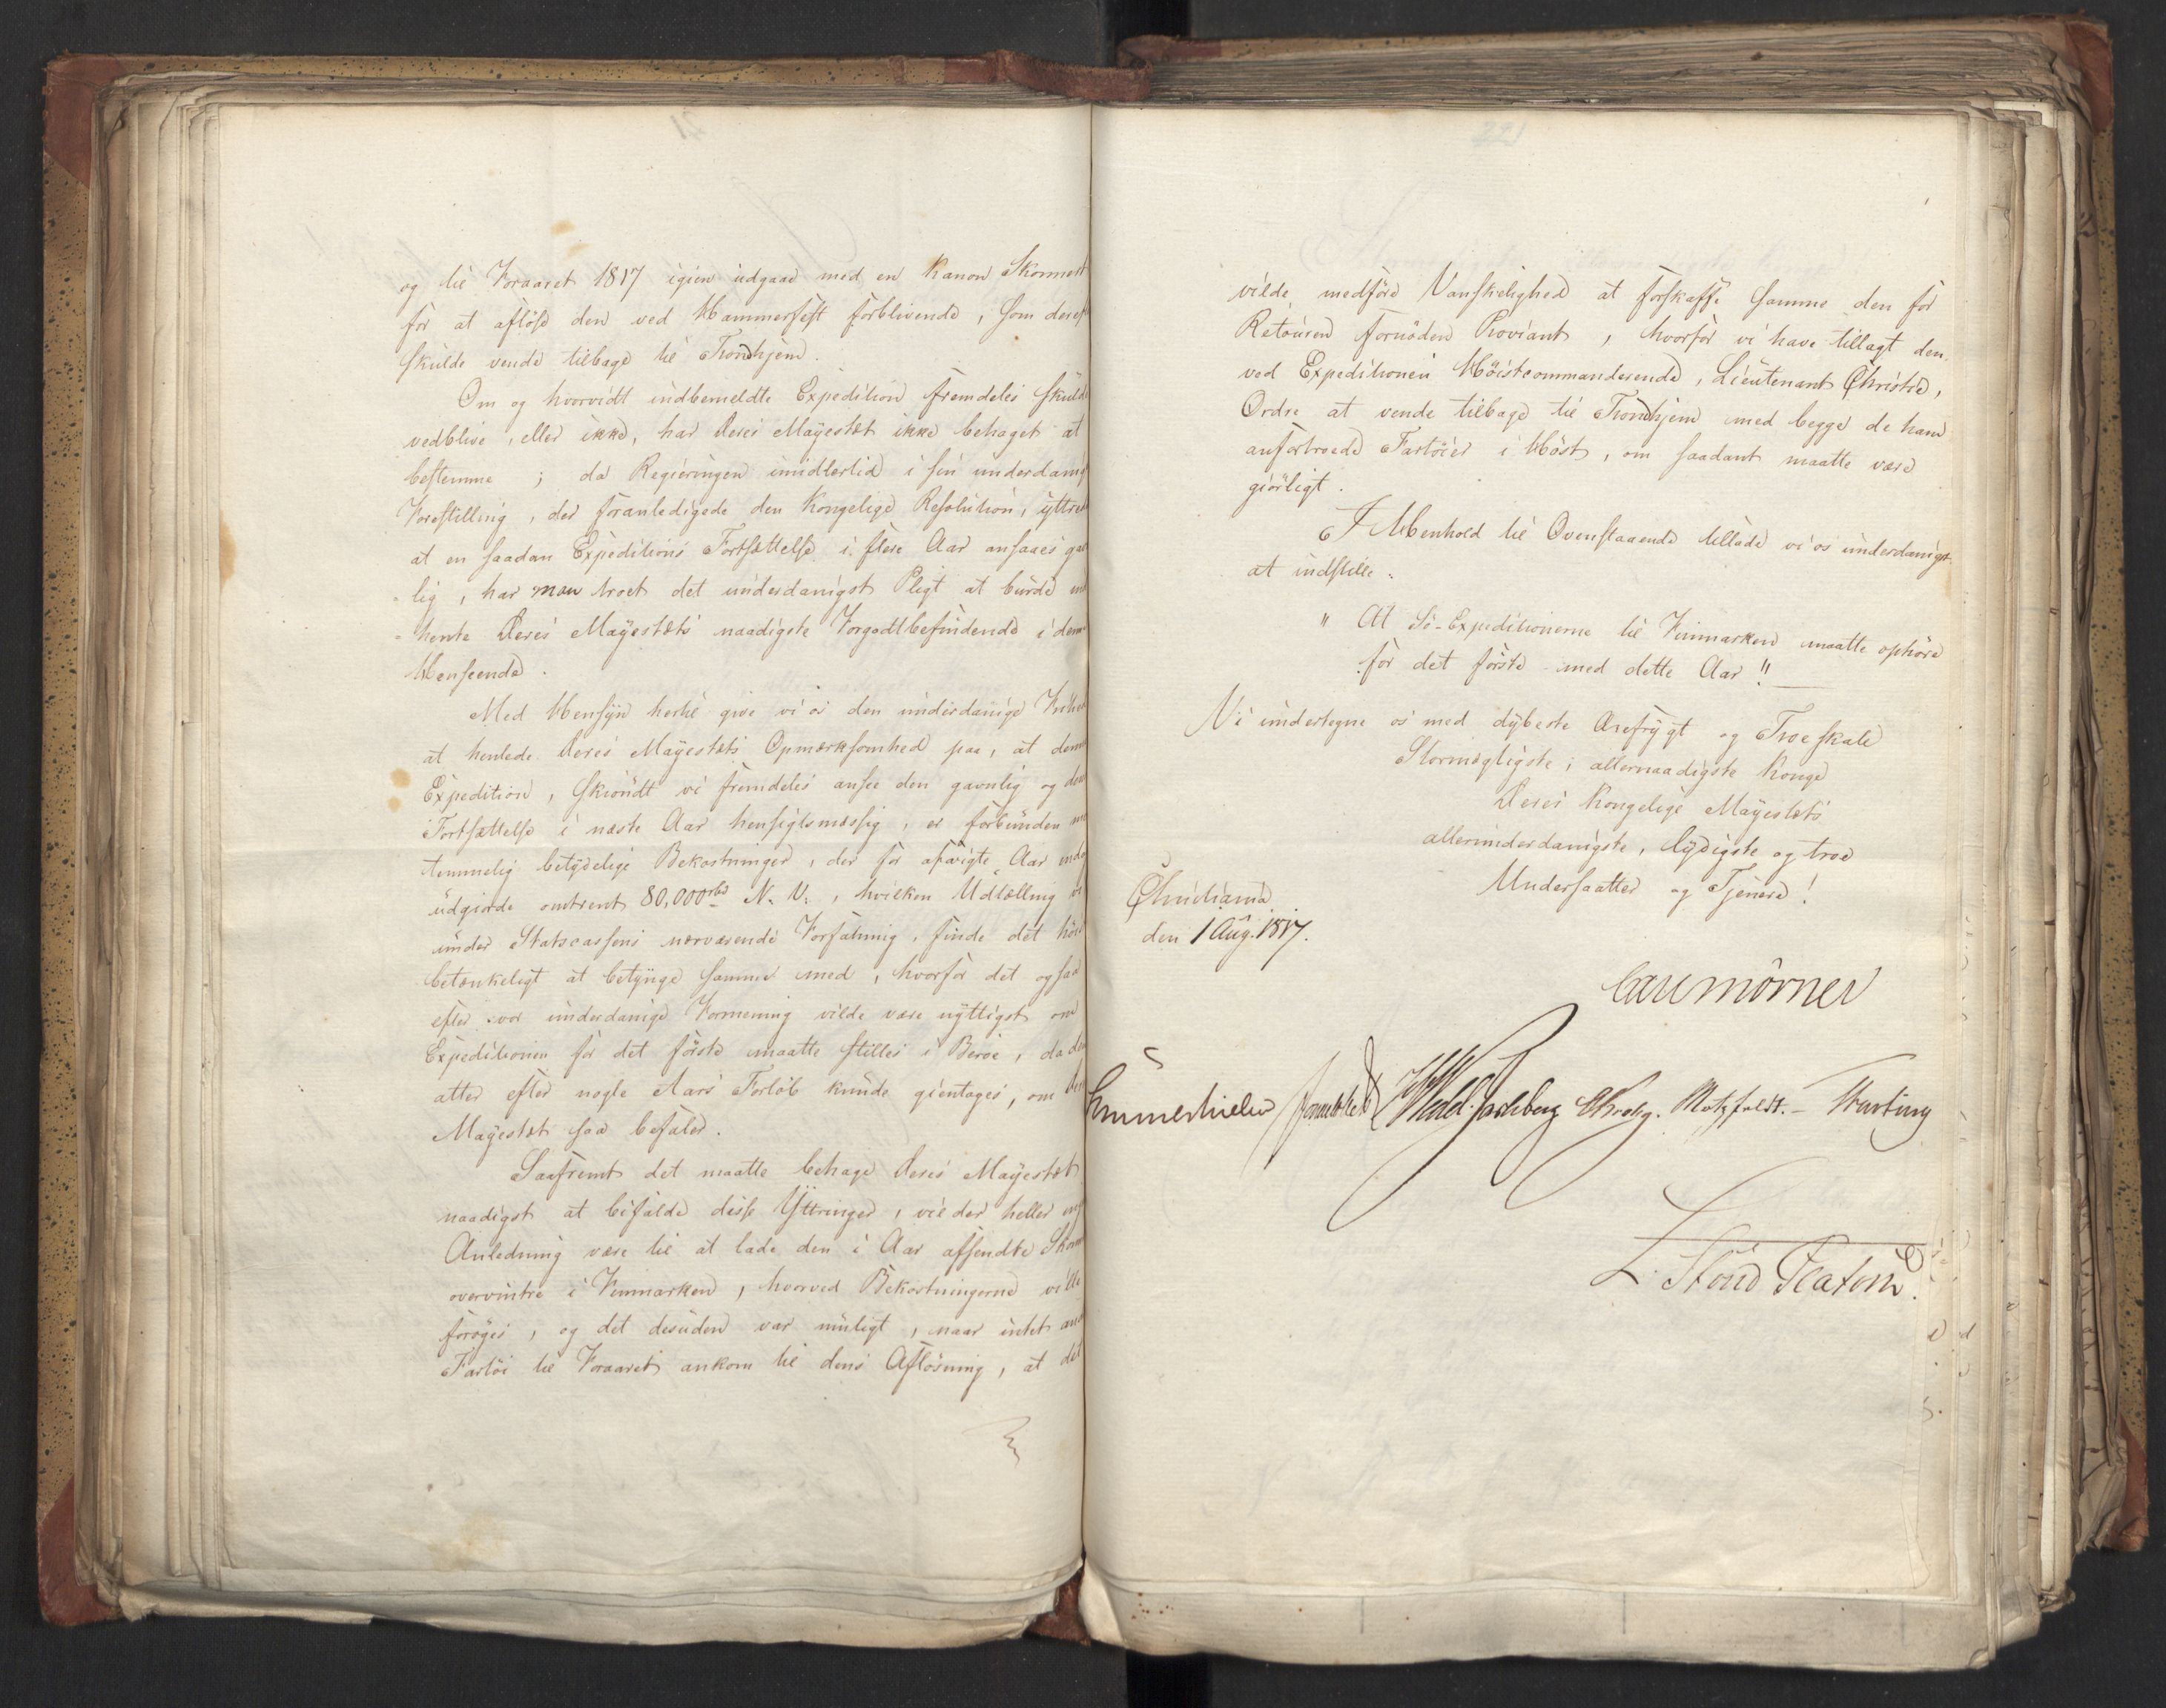 og til Foraaret 1817 igien udgaae med en Kanon Skonnert
for at aflöse den ved Hammerfest forblivende, som dereft
skulde vende tilbage til Trondhjem.
Om og hvorvidt indbemeldte Expedition fremdeles skulde
vedblive, eller ikke, har Deres Mayestæt ikke behaget at
bestemme; da Regieringen imidlertid i sin underdanig
Forestilling, der foranledigede den Kongelige Resolution, yttrede
at en saadan Expeditions Fortsættelse i flere Aar ansaaes gav
-lig, har man troet det underdanigst Pligt at burde ind
-hente Deres Mayestæts naadigste Forgodtbefindende i denne
Henseende.
Med Hensyn hertil give vi os den underdanige Frihed
at henlede Deres Mayestæts Opmærksomhed paa, at denne
Expedition, skiöndt vi fremdeles ansee den gavnlig og dens
Fortsættelse i næste Aar hensigtsmæssig, er forbunden med
temmelig betydelige Bekostninger, der for afvigte Aar endog
udgiorde omtrent 80,000 rbd N. V., hvilken Udtælling vi
under Statscassens nærværende Forfatning, finde det höist
betænkeligt at betynge samme med, hvorfor det ogsaa
efter vor underdanige Formening vilde være nyttigst om
Expeditionen for det förste maatte stilles i Beroe, da den
atter efter nogle Aars Forlöb kunde gientages, om Deres
Mayestæt saa befaler.
Saafremt det maatte behage Deres Mayestæt
naadigst at bifalde disse Yttringer, vil der heller ing
Anledning være til at lade den i Aar afsendte Skonn
overvintre i Finmarken, hvorved Bekostningerne vilde
foröges, og det desuden var muligt, naar intet and
Fartöi til Foraaret ankom til dens Aflösning, at det
vilde medföre Vanskelighed at forskaffe samme den for
Retouren fornöden Proviant, hvorfor vi have tillagt den
ved Expeditionen Höistcommanderende, Lieutenant Christie,
Ordre at vende tilbage til Trondhjem med begge de ham
anfortroede Fartöier i Höst, om saadant maatte være
giörligt.
I Henhold til Ovenstaaende tillade vi os underdanigst
at indstille:
" At Sö-Expeditionerne til Finmarken maatte ophöre
for det förste med dette Aar!"
Vi undertegne os med dybeste Ærefrygt og Troeskab
Stormægtigste, allernaadigste Konge
Deres Kongelige Mayestæts
allerunderdanigste, lydigste og troe
Undersaatter og Tjenere!
Christiania
den 1 Aug. 1817.
Carl Mörner
Sommerhielm Wedel Jarlsberg Krohg. Motzfeldt. - Hartung
L. Stoud Platou